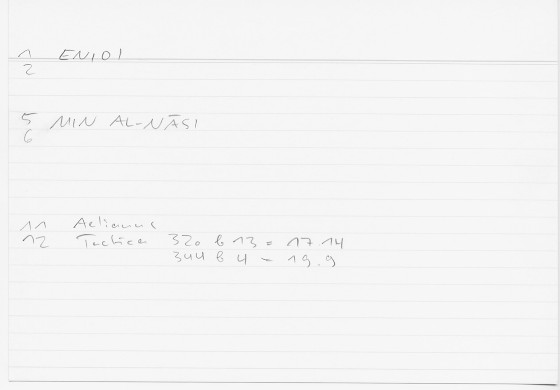 1 ENIOI
2
5 MIN AL-NĀSI
6
11 Aelianus
12 Tactica 320 b 13 = 17.14
344 b 4 - 19.9